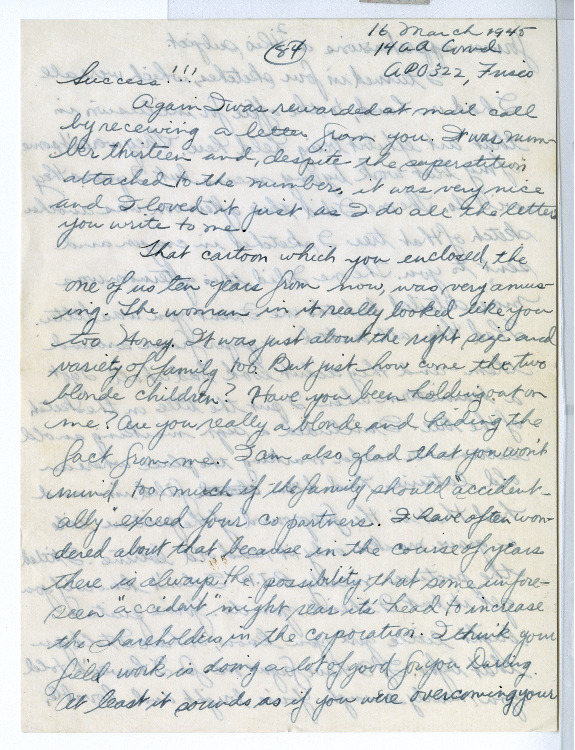 16 March 1945
(84)
14 AA Comd
APO 322, Frisco
Success!!!
Again I was rewarded at mail call
by receiving a letter from you. It was num-
ber thirteen and, despite the superstition
attached to the number, it was very nice
and I loved it just as I do all the letters
you write to me.
That cartoon which you enclosed, the
one of us ten years from now, was very amus-
ing. The woman in it really looked like you
too Honey. It was just about the right size and
variety of family too. But just how come the two
blonde children? Have you been holding out on
me? Are you really a blonde and hiding the
fact from me. I am also glad that you won't
mind too much if the family should "accident-
ally" exceed four co partners. I have often won-
dered about that because in the course of years
there is always the possibility that some unfore-
seen "accident" might rear its' head to increase
the shareholders in the corporation. I think your
field work is doing a lot of good for you Darling
At least it sounds as if you were overcoming your